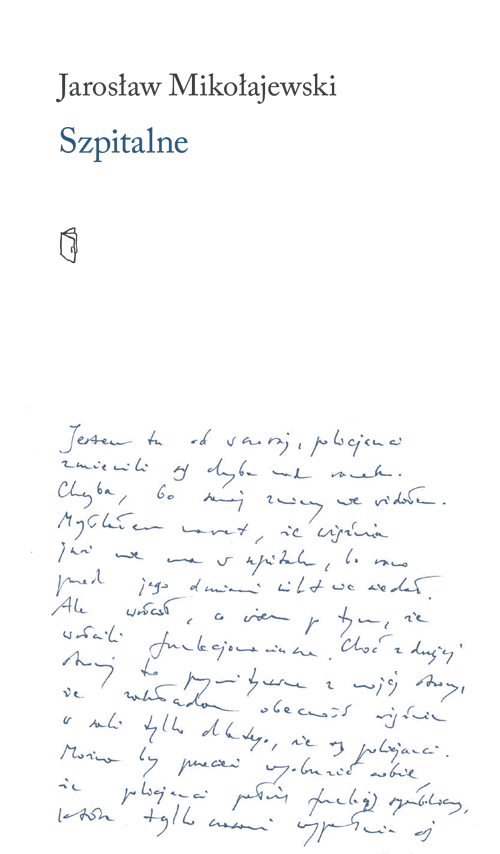 Jarosław Mikołajewski
Szpitalne
Jestem tu od wczoraj, policjanci
zmienili się chyba nad ranem.
Chyba, bo samej zmiany nie widziałem.
Myślałem nawet, że więźnia
już nie ma w szpitalu, bo rano
przed jego drzwiami nikt nie siedział.
Ale wrócił, a wiem po tym, że
wrócili funkcjonariusze. Choć z drugiej
strony to prymitywne z mojej strony,
że zakładam obecność więźnia
w sali tylko dlatego, że są policjanci.
Można by przecież wyobrazić sobie,
że policjanci pełnią funkcję symboliczną,
która tylko czasami wypełnia się